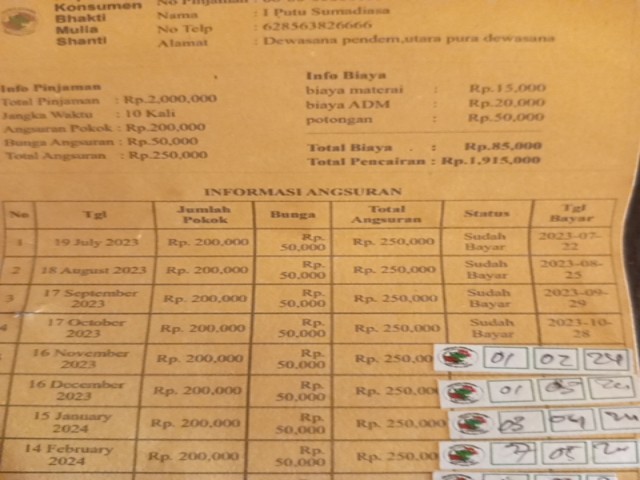 Konsumen
Bhakti
Mulia
Shanti
Nama : I Putu Sumadiasa
No Telp : 628563826666
Alamat : Dewasana pendem,utara pura dewasana
Info Pinjaman
Total Pinjaman : Rp.2,000,000
Jangka Waktu : 10 Kali
Angsuran Pokok : Rp.200,000
Bunga Angsuran : Rp.50,000
Total Angsuran : Rp.250,000
Info Biaya
biaya materai : Rp.15,000
biaya ADM : Rp.20,000
potongan : Rp.50,000
Total Biaya : Rp.85,000
Total Pencairan : Rp.1,915,000
INFORMASI ANGSURAN
No Tgl Jumlah Pokok Bunga Total Angsuran Status Tgl Bayar
1 19 July 2023 Rp. 200,000 Rp. 50,000 Rp. 250,000 Sudah Bayar 2023-07-22
2 18 August 2023 Rp. 200,000 Rp. 50,000 Rp. 250,000 Sudah Bayar 2023-08-25
3 17 September 2023 Rp. 200,000 Rp. 50,000 Rp. 250,000 Sudah Bayar 2023-09-29
4 17 October 2023 Rp. 200,000 Rp. 50,000 Rp. 250,000 Sudah Bayar 2023-10-28
16 November 2023 Rp. 200,000 Rp. 50,000 Rp. 250,00 01 02 24
16 December 2023 Rp. 200,000 Rp. 50,000 Rp. 250,00 01
15 January 2024 Rp. 200,000 Rp. 50,000 Rp. 250,00 03 04
14 February 2024 Rp. 200,000 Rp. 50,000 Rp. 250,00